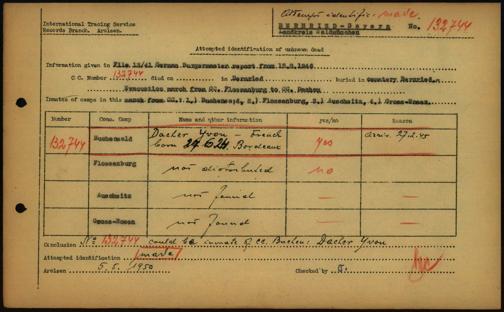 Attempt identific. made.
International Tracing Service
Records Branch. Arolsen.
BERNRIED-Bavaria No. 132744
Landkreis
Attempted identification of unknown dead
Information given in File 12/41 German Burgermaster report from 15.8.1946
C.C. Number 132744 died on - in Bernried buried in cemetery Bernried.
Evacuation march from CC. Flossenburg to CC. Dachau
Inmates of camps in this march from CC.: 1.) Buchenwald, 2.) Flossenburg, 3.) Auschwitz, 4.) Gross-Rosen.
Number Conc. Camp Name and other information yes/no Reason
132744 Buchenwald Dacler Yvon - French yes arriv. 27.2.45
born 27.6.24, Bordeaux
Flossenburg not distributed no
Auschwitz not found — —
Gross-Rosen not found — —
Conclusion No 132744 could be inmate of CC. Buchen: Dacler Yvon
Attempted identification made
Arolsen 5.5.1950 Checked by